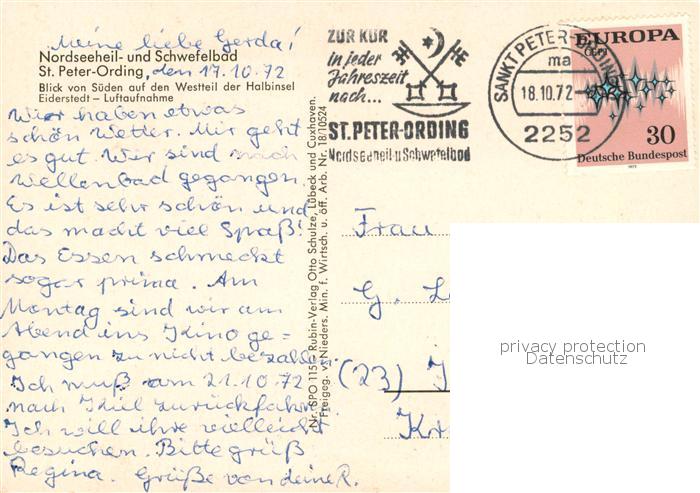 Meine liebe Gerda!
Nordseeheil- und Schwefelbad
St. Peter-Ording, den 17.10.72
Blick von Süden auf den Westteil der Halbinsel
Eiderstedt – Luftaufnahme
Wir haben etwas
schön Wetter. Mir geht
es gut. Wir sind nach
Wellenbad gegangen.
Es ist sehr schön und
das macht viel Spaß!
Das Essen schmeckt
sogar prima. Am
Montag sind wir am
Abend ins Kino ge=
gangen zu nicht bezahlen.
Ich muß am 21.10.72
nach Kiel zurückfahren.
Ich will ihre vielleicht
besuchen. Bitte grüß
Regina. Grüße von deine R.
Nr. SPO 1155 – Rubin-Verlag Otto Schulze, Lübeck und Cuxhaven.
Freigeg. v. Nieders. Min. f. Wirtsch. u. öff. Arb. Nr. 18/10524
ZUR KUR
in jeder
Jahreszeit
nach...
ST. PETER-ORDING
Nordseeheil- u Schwefelbad
SANKT PETER-ORDING
ma
18.10.72
2252
EUROPA
CEPT
30
Deutsche Bundespost
1972
Frau
G.
(23)
privacy protection
Datenschutz